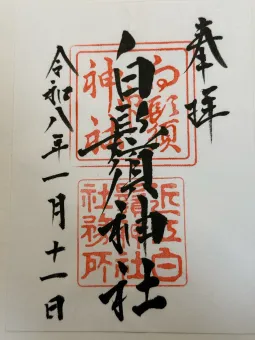 奉拝
白鬚神社
令和八年一月十一日
白鬚
神社
近江白
鬚神社
社務所